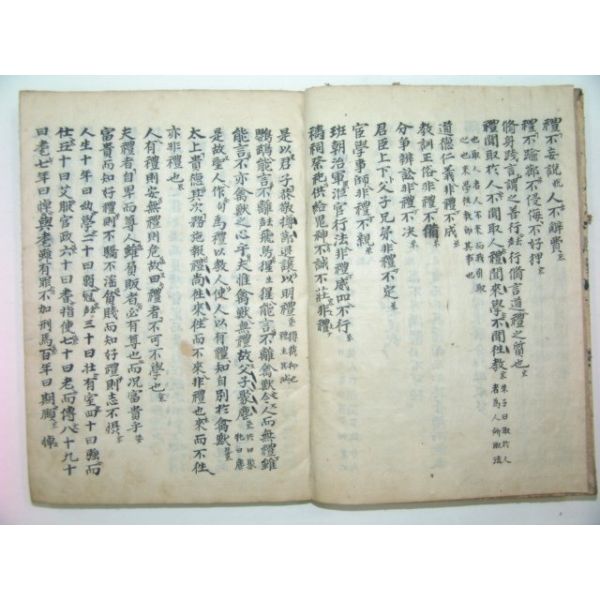 禮不妄說也人不辭費
禮不踰節不侵侮不好狎
脩身踐言謂之善行行脩言道禮之質也
禮聞取於人不聞取人禮聞來學不聞往教
朱子曰取於人
者爲人所取法
也取人者人不來而我引取
之也來學往教卽其事也
道德仁義非禮不成
教訓正俗非禮不備
分爭辨訟非禮不決
君臣上下父子兄弟非禮不定
宦學事師非禮不親
班朝治軍涖官行法非禮威不行
禱祠祭祀供給鬼神不誠不莊非禮
是以君子恭敬撙節退讓以明禮
鸚鵡能言不離飛鳥猩猩能言不離禽獸今人而無禮雖
能言不亦禽獸之心乎夫惟禽獸無禮故父子聚麀
是故聖人作爲禮以教人使人以有禮知自別於禽獸
太上貴德其次務施報禮尚往來往而不來非禮也來而不往
亦非禮也
人有禮則安無禮則危故曰禮者不可不學也
夫禮者自卑而尊人雖負販者必有尊也而况富貴乎
富貴而知好禮則不驕不淫貧賤而知好禮則志不懾
人生十年曰幼學二十曰弱冠三十曰壯有室四十曰強而
仕五十曰艾服官政六十曰耆指使七十曰老而傳八十九十
曰耄七年曰悼與耄雖有罪不加刑焉百年曰期頤 悼